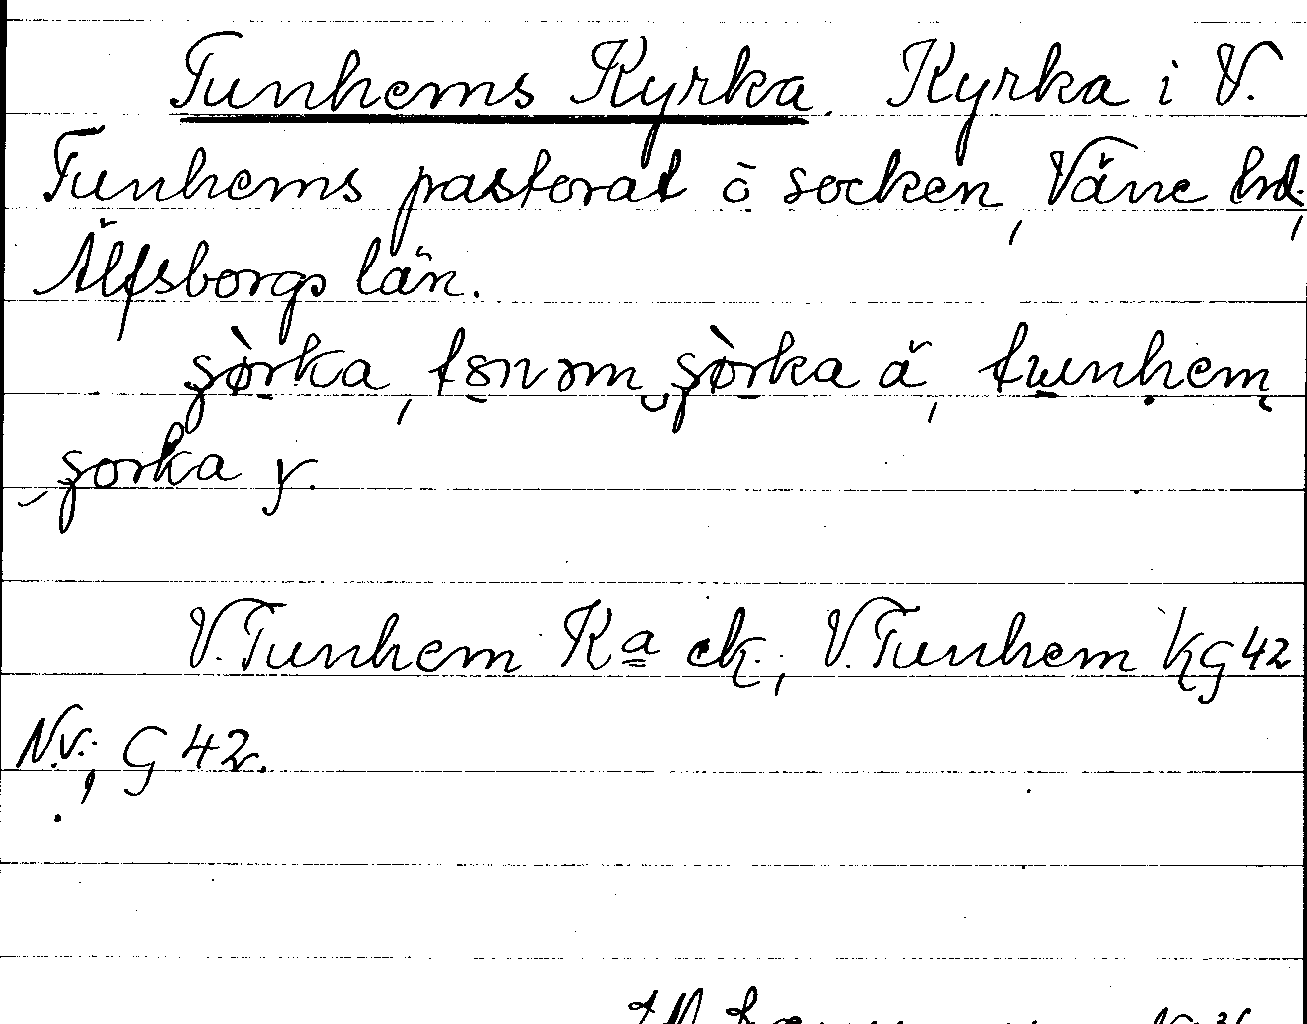 Tunhems Kyrka. Kyrka i V.
Tunhems pastorat o socken, Väne hrd,
Älfsborgs län.
şòrka, tonom şòrka ä, tunhem
şorka y.
V. Tunhem Ka ek.; V. Tunhem K G 42
N.v.; G 42.